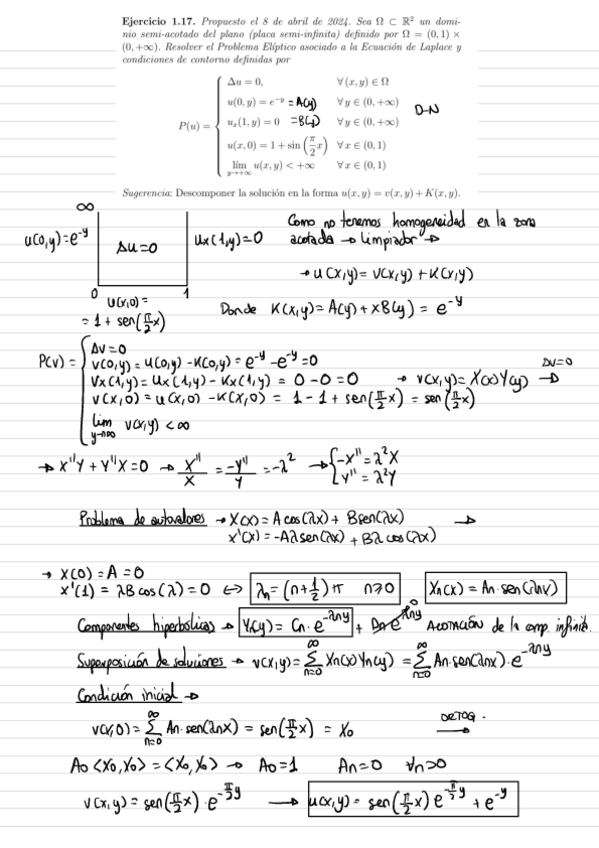 Ejercicio 1.17. Propuesto el 8 de abril de 2024. Sea Ω ⊂ ℝ² un domi-
nio semi-acotado del plano (placa semi-infinita) definido por Ω = (0, 1) ×
(0, +∞). Resolver el Problema Elíptico asociado a la Ecuación de Laplace y
condiciones de contorno definidas por
Δu = 0, ∀(x, y) ∈ Ω
u(0, y) = e^{-y} = A(y) ∀y ∈ (0, +∞) D-N
P(u) = { u_x(1, y) = 0 = B(y) ∀y ∈ (0, +∞)
u(x, 0) = 1 + sin(π/2 x) ∀x ∈ (0, 1)
lím_{y→+∞} u(x, y) < +∞ ∀x ∈ (0, 1)
Sugerencia: Descomponer la solución en la forma u(x, y) = v(x, y) + K(x, y).
∞
u(0,y)=e^{-y} Δu=0 Ux(1,y)=0
0 1
U(x,0) =
= 1 + sen(π/2 x)
Como no tenemos homogeneidad en la zona
acotada → Limpiador →
→ u(x,y) = v(x,y) + K(x,y)
Donde K(x,y) = A(y) + xB(y) = e^{-y}
P(v) = { Δv = 0
v(0,y) = u(0,y) - K(0,y) = e^{-y} - e^{-y} = 0
Vx(1,y) = Ux(1,y) - Kx(1,y) = 0 - 0 = 0 → v(x,y) = X(x)Y(y) Δv=0 →
v(x,0) = u(x,0) - K(x,0) = 1 - 1 + sen(π/2 x) = sen(π/2 x)
lim_{y→∞} v(x,y) < ∞
→ X''Y + Y''X = 0 → X''/X = -Y''/Y = -λ² → { -X'' = λ²X
Y'' = λ²Y
Problema de autovalores → X(x) = A cos(λx) + B sen(λx) →
x'(x) = -Aλ sen(λx) + Bλ cos(λx)
→ X(0) = A = 0
x'(1) = λB cos(λ) = 0 ↔ λn = (n + 1/2) π n≥0 Xn(x) = An · sen(λnx)
Componentes hiperbólicas → Yn(y) = Cn · e^{-λny} + Dn e^{λny} 0 ACOTACIÓN de la comp. infinita.
Superposición de soluciones → v(x,y) = Σ_{n=0}^{∞} Xn(x)Yn(y) = Σ_{n=0}^{∞} An · sen(λnx) · e^{-λny}
Condición inicial →
v(x,0) = Σ_{n=0}^{∞} An · sen(λnx) = sen(π/2 x) = X₀ ORTOG. →
A₀ <X₀,X₀> = <X₀,X₀> → A₀ = 1 An = 0 ∀n>0
v(x,y) = sen(π/2 x) · e^{-π/2 y} → u(x,y) = sen(π/2 x) e^{-π/2 y} + e^{-y}